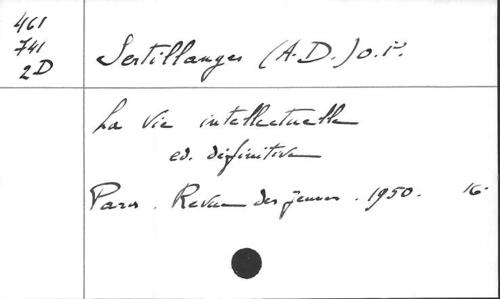 461
741
2D
Sertillanges (A.D.) O.P.
La Vie intellectuelle
ed. définitive
Paris. Revue des Jeunes. 1950. 16.